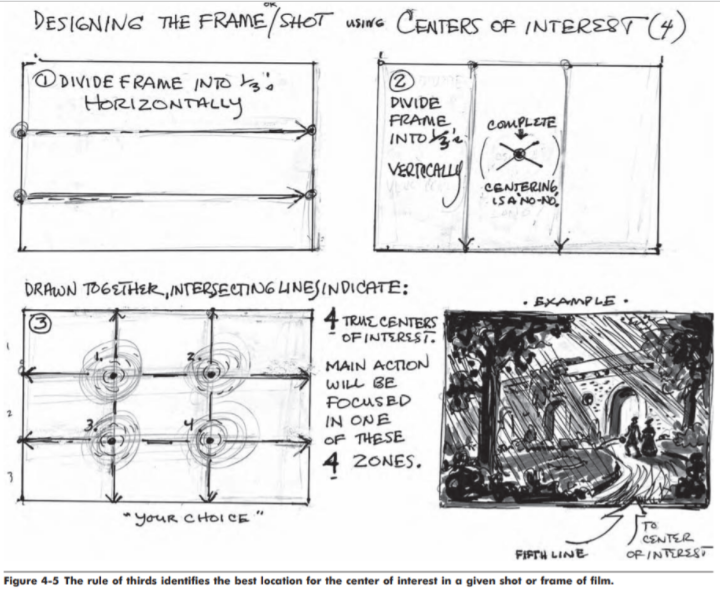 DESIGNING THE FRAME/SHOT USING CENTERS OF INTEREST (4)
OR
① DIVIDE FRAME INTO 1/3's
HORIZONTALLY
②
DIVIDE
FRAME
INTO 1/3's
VERTICALLY
COMPLETE
CENTERING
IS A "NO-NO."
DRAWN TOGETHER, INTERSECTING LINES INDICATE:
③
1.
2.
3.
4
1
2
3
"YOUR CHOICE"
4 TRUE CENTERS
OF INTEREST.
MAIN ACTION
WILL BE
FOCUSED
IN ONE
OF THESE
4 ZONES.
• EXAMPLE •
FIFTH LINE
TO
CENTER
OF INTEREST
Figure 4-5 The rule of thirds identifies the best location for the center of interest in a given shot or frame of film.